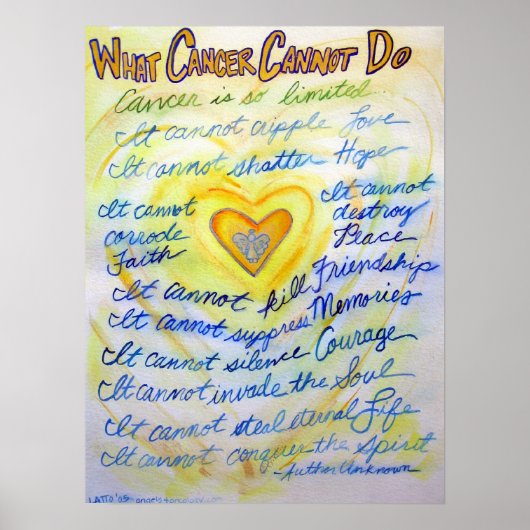 WHAT CANCER CANNOT DO
Cancer is so limited...
It cannot cripple Love
It cannot shatter Hope
It cannot
corrode
Faith
It cannot
destroy
Peace
It cannot kill Friendship
It cannot suppress Memories
It cannot silence Courage
It cannot invade the Soul
It cannot steal eternal Life
It cannot conquer the Spirit
-Author Unknown
LATTO '05 angels4oncology.com